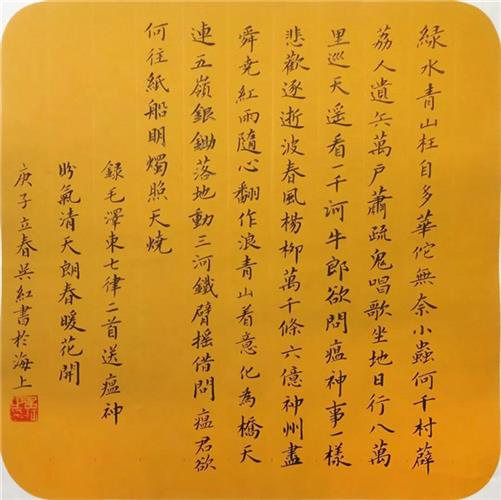 綠水青山枉自多華佗無奈小蟲何千村薜
荔人遺矢萬戶蕭疏鬼唱歌坐地日行八萬
里巡天遥看一千河牛郎欲問瘟神事一樣
悲歡逐逝波春風楊柳萬千條六億神州盡
舜尭紅雨隨心翻作浪青山着意化為橋天
連五嶺銀鋤落地動三河鐵臂摇借問瘟君欲
何往紙船明燭照天燒
録毛澤東七律二首送瘟神
盼氣清天朗春暖花開
庚子立春吳紅書於海上